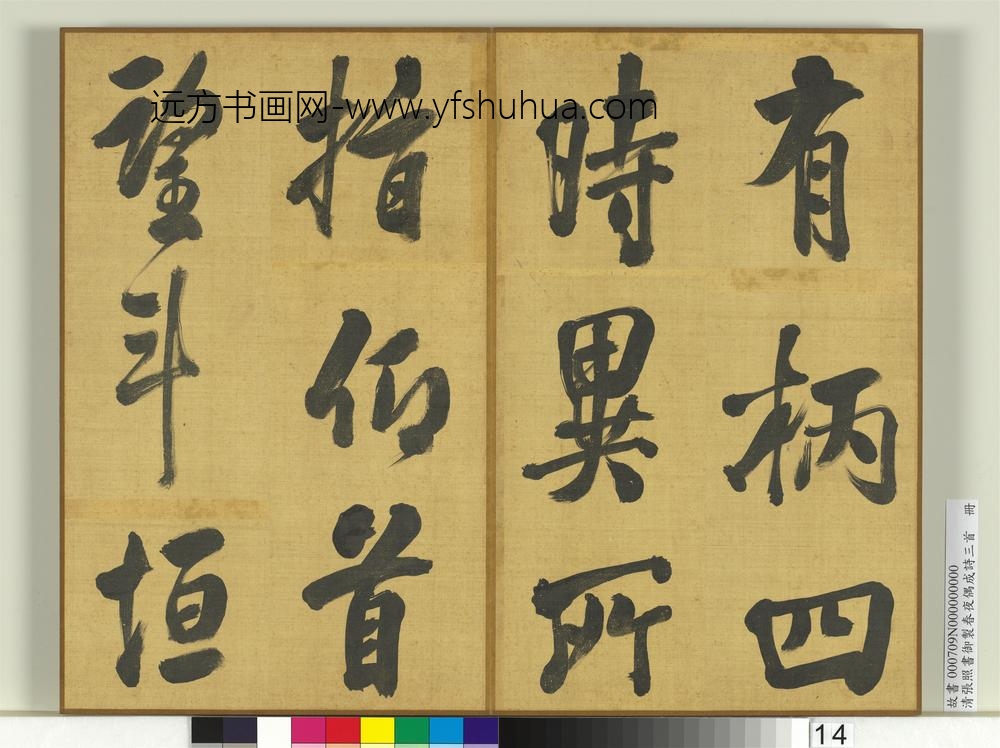 有柄四
時異所
指仰首
望斗垣
远方书画网-www.yfshuhua.com
故書 000709N000000000
清張照書御製春夜偶成詩三首 冊
14